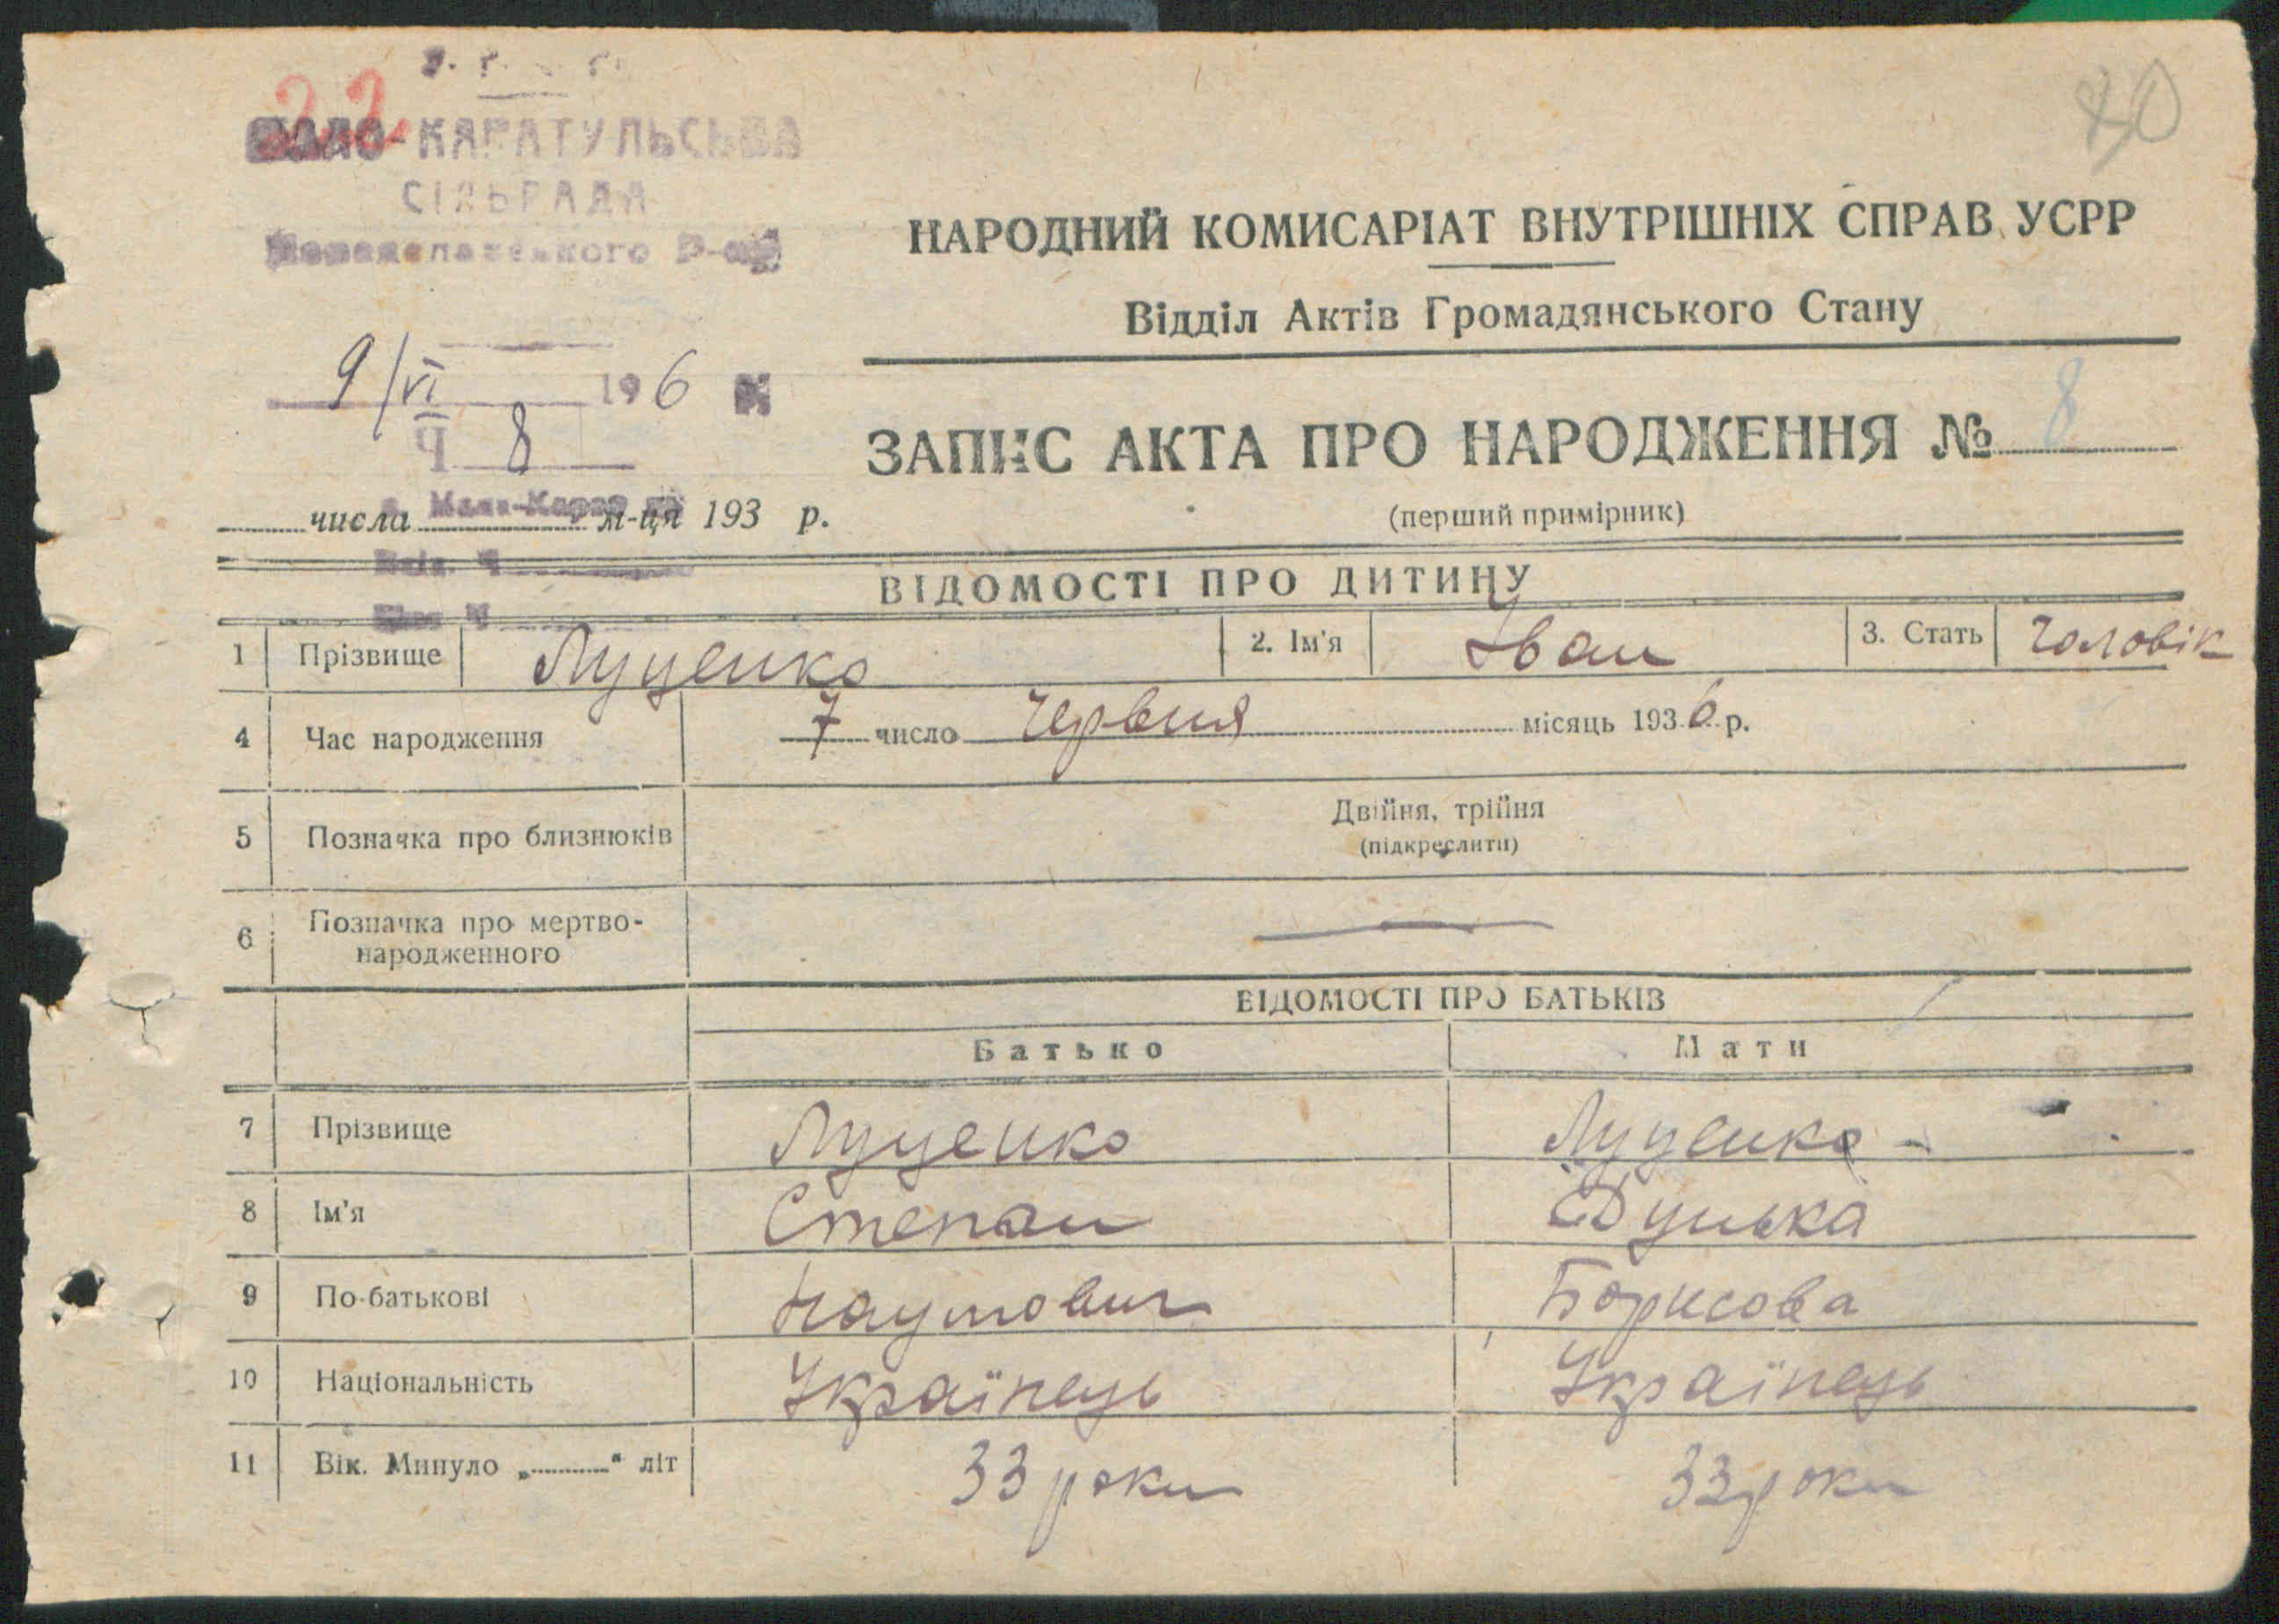 22
МАЛО-КАРАТУЛЬСЬКА
СІЛЬРАДА
Р-ну
40
НАРОДНИЙ КОМИСАРІАТ ВНУТРІШНІХ СПРАВ УСРР
Відділ Актів Громадянського Стану
9/VI 196
Ч 8
ЗАПИС АКТА ПРО НАРОДЖЕННЯ № 8
(перший примірник)
числа м-ця 193 р.
ВІДОМОСТІ ПРО ДИТИНУ
1 Прізвище Луценко 2. Ім'я Іван 3. Стать чоловік
4 Час народження 7 число Червня місяць 1936 р.
5 Позначка про близнюків Двійня, трійня
(підкреслити)
6 Позначка про мертво-
народженного
ВІДОМОСТІ ПРО БАТЬКІВ
Батько Мати
7 Прізвище Луценко Луценко
8 Ім'я Степан Дунька
9 По-батькові Наумович Борисова
10 Національність Українець Українець
11 Вік. Минуло „ “ літ 33 роки 33 роки